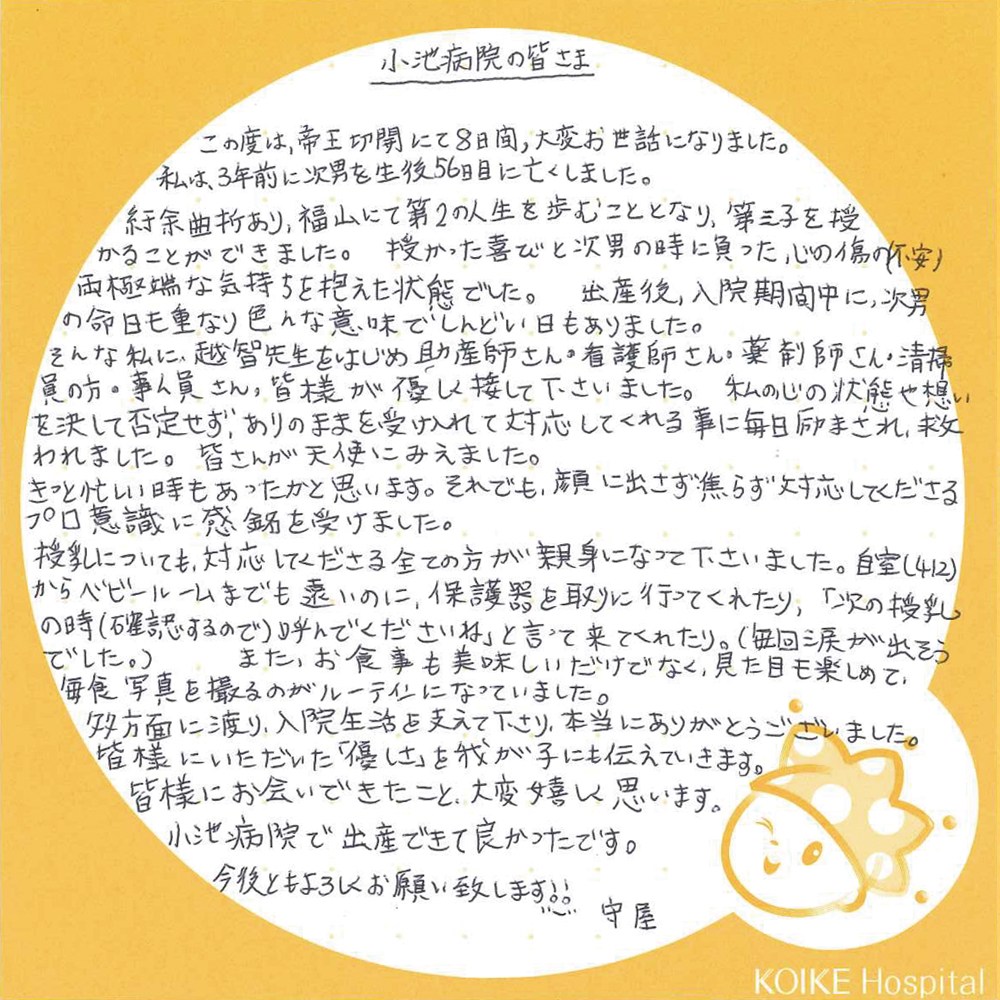 小池病院の皆さま
この度は、帝王切開にて8日間、大変お世話になりました。
私は、3年前に次男を生後56日目に亡くしました。
紆余曲折あり、福山にて第2の人生を歩むこととなり、第三子を授
かることができました。 授かった喜びと次男の時に負った、心の傷の(不安)
両極端な気持ちを抱えた状態でした。 出産後、入院期間中に、次男
の命日も重なり色んな意味でしんどい日もありました。
そんな私に、越智先生をはじめ助産師さん・看護師さん・薬剤師さん・清掃
員の方・事ム員さん、皆様が優しく接して下さいました。 私の心の状態や想い
を決して否定せず、ありのままを受け入れて対応してくれる事に毎日励まされ、救
われました。 皆さんが天使にみえました。
きっと忙しい時もあったかと思います。それでも、顔に出さず焦らず対応してくださる
プロ意識に感銘を受けました。
授乳についても、対応してくださる全ての方が親身になって下さいました。自室(412)
からベビールームまでも遠いのに、保護器を取りに行ってくれたり、「次の授乳
の時(確認するので)呼んでくださいね」と言って来てくれたり。(毎回涙が出そう
でした。) また、お食事も美味しいだけでなく、見た目も楽しめて、
毎食写真を撮るのがルーティンになっていました。
多方面に渡り、入院生活を支えて下さり、本当にありがとうございました。
皆様にいただいた「優しさ」を我が子にも伝えていきます。
皆様にお会いできたこと、大変嬉しく思います。
小池病院で出産できて良かったです。
今後ともよろしくお願い致します!!
守屋
KOIKE Hospital